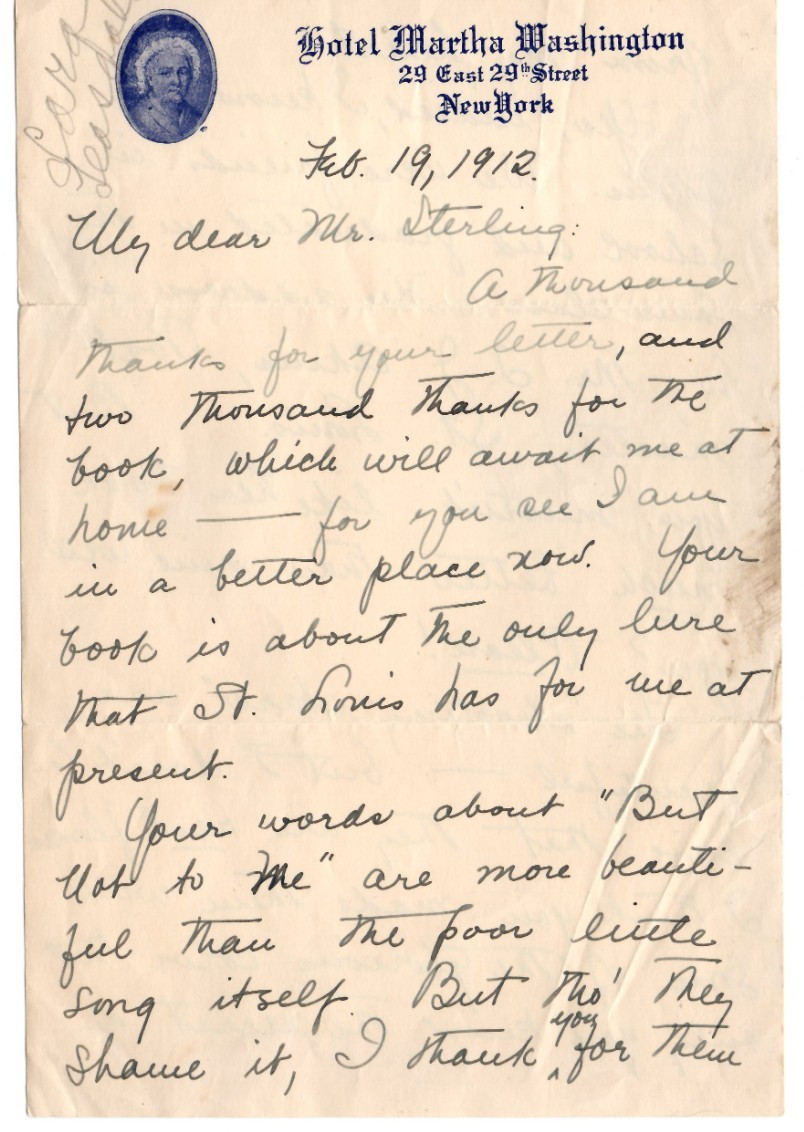 Sara
Teasdale
Hotel Martha Washington
29 East 29th Street
New York
Feb. 19, 1912.
My dear Mr. Sterling:
A thousand
thanks for your letter, and
two thousand thanks for the
book, which will await me at
home — for you see I am
in a better place now. Your
book is about the only lure
that St. Louis has for me at
present.
Your words about "But
Not to Me" are more beauti-
ful than the poor little
song itself. But tho' they
shame it, I thank you for them